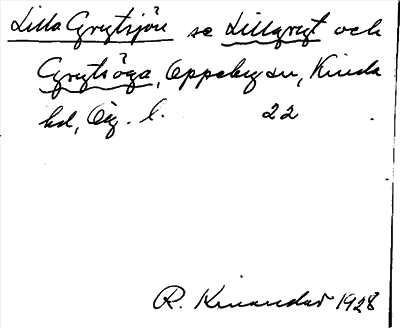 Lilla Grytsjön se Lillgryt och
Grytsöga, Oppeby sn, Kinda
hd, Ög. l. 22
R. Kinander 1928